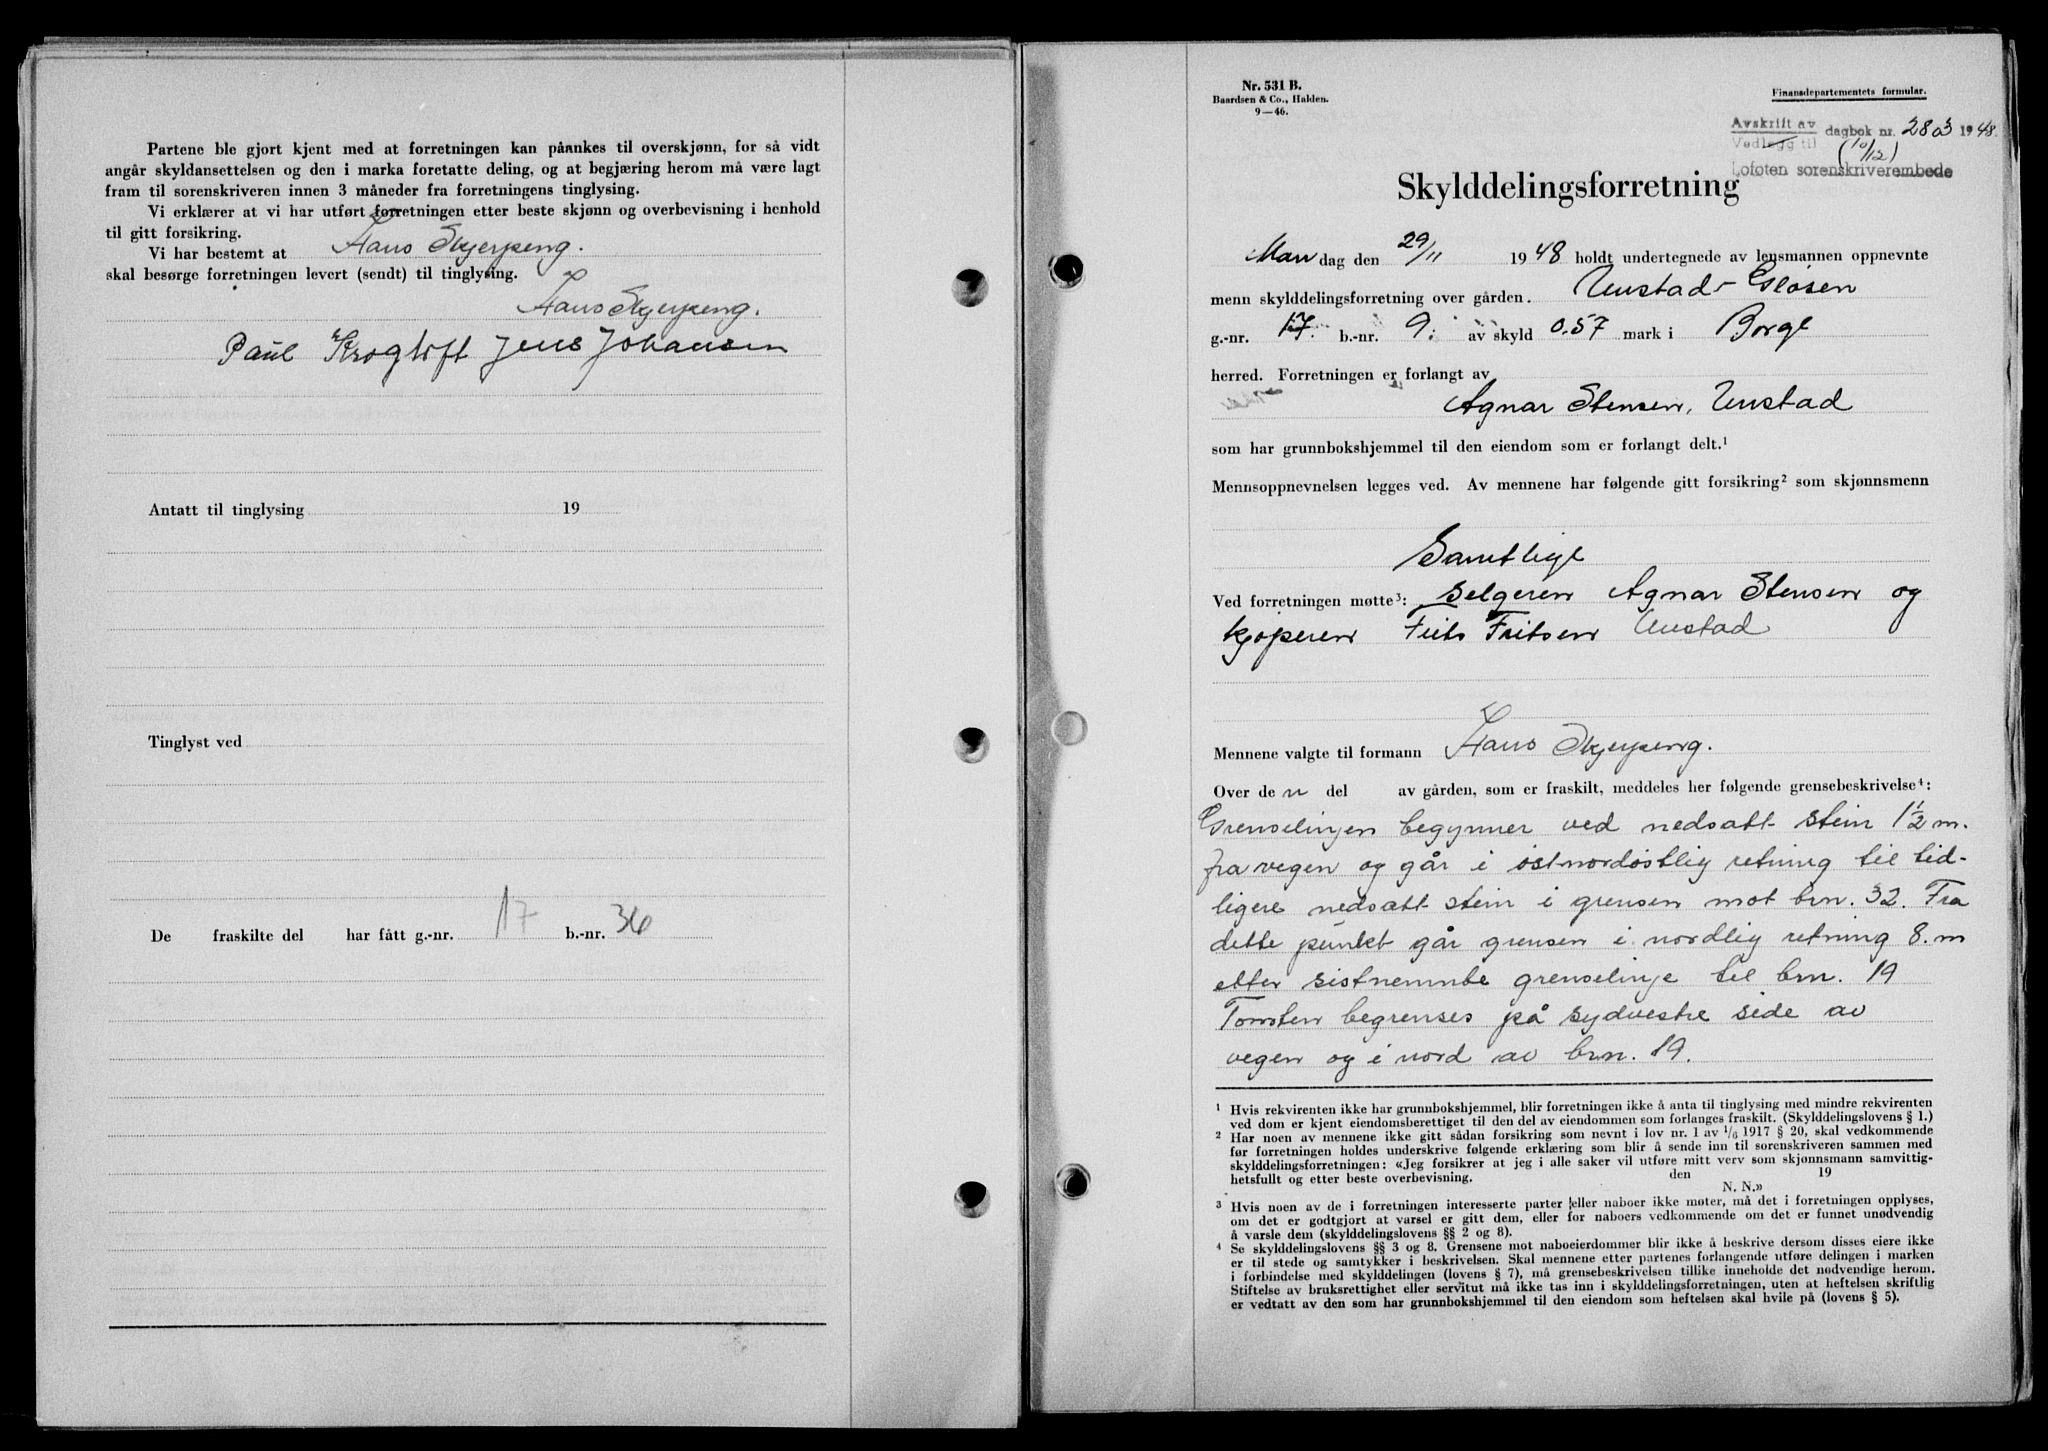 Partene ble gjort kjent med at forretningen kan påankes til overskjønn, for så vidt
angår skyldansettelsen og den i marka foretatte deling, og at begjæring herom må være lagt
fram til sorenskriveren innen 3 måneder fra forretningens tinglysing.
Vi erklærer at vi har utført forretningen etter beste skjønn og overbevisning i henhold
til gitt forsikring.
Vi har bestemt at Hans Skjerpeng.
skal besørge forretningen levert (sendt) til tinglysing.
Hans Skjerpeng.
Paul Krogtoft Jens Johansen
Antatt til tinglysing 19
Tinglyst ved
De fraskilte del har fått g.-nr. 17 b.-nr. 36
Nr. 531 B.
Baardsen & Co., Halden.
9—46.
Finansdepartementets formular.
Avskrift av
Vedlegg til dagbok nr. 2803 1948.
(10/12)
Lofoten sorenskriverembede
Skylddelingsforretning
Man dag den 29/11 1948 holdt undertegnede av lensmannen oppnevnte
menn skylddelingsforretning over gården. Unstad - Gløsen
g.-nr. 17. b.-nr. 9. av skyld 0.57 mark i Borge
herred. Forretningen er forlangt av
Agnar Stensen, Unstad
som har grunnbokshjemmel til den eiendom som er forlangt delt.¹
Mennsoppnevnelsen legges ved. Av mennene har følgende gitt forsikring² som skjønnsmenn
Samtlige
Ved forretningen møtte³: Selgeren Agnar Stensen og
kjøperen Frits Fritsen Unstad
Mennene valgte til formann Hans Skjerpeng.
Over de n del av gården, som er fraskilt, meddeles her følgende grensebeskrivelse⁴:
Grenselinjen begynner ved nedsatt stein 1½ m.
fra vegen og går i østnordøstlig retning til tid-
ligere nedsatt stein i grensen mot brn. 32. Fra
dette punkt går grensen i nordlig retning 8. m
etter sistnemnte grenselinje til brn. 19
Tomten begrenses på sydvestre side av
vegen og i nord av brn. 19.
¹ Hvis rekvirenten ikke har grunnbokshjemmel, blir forretningen ikke å anta til tinglysing med mindre rekvirenten
ved dom er kjent eiendomsberettiget til den del av eiendommen som forlanges fraskilt. (Skylddelingslovens § 1.)
² Har noen av mennene ikke gitt sådan forsikring som nevnt i lov nr. 1 av 1/6 1917 § 20, skal vedkommende
før forretningen holdes underskrive følgende erklæring som blir å sende inn til sorenskriveren sammen med
skylddelingsforretningen: «Jeg forsikrer at jeg i alle saker vil utføre mitt verv som skjønnsmann samvittig-
hetsfullt og etter beste overbevisning. den 19
N. N.»
³ Hvis noen av de i forretningen interesserte parter eller naboer ikke møter, må det i forretningen opplyses,
om det er godtgjort at varsel er gitt dem, eller for naboers vedkommende om det er funnet unødvendig
å varsle dem (skylddelingslovens §§ 2 og 8).
⁴ Se skylddelingslovens §§ 3 og 8. Grensene mot naboeierdommer blir ikke å beskrive dersom disses eiere ikke
er til stede og samtykker i beskrivelsen. Skal mennene etter partenes forlangende utføre delingen i marken
i forbindelse med skylddelingen (lovens § 7), må grensebeskrivelsen tillike inneholde det nødvendige herom.
Stiftelse av bruksrettighet eller servitut må ikke tas inn i skylddelingsforretningen, uten at heftelsen skriftlig
er vedtatt av den som har grunnbokshjemmel til den eiendom som heftelsen skal hvile på (lovens § 5).